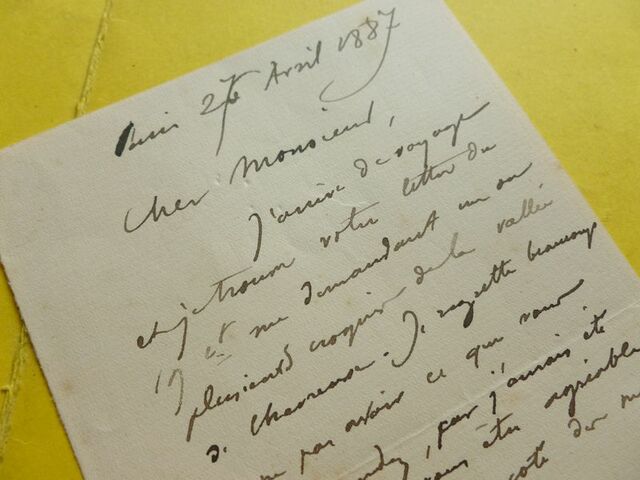 Paris 27 Avril 1887
Cher Monsieur,
J'arrive de voyage
et je trouve votre lettre du
19 ct me demandant un ou
plusieurs croquis de la vallée
de Chevreuse. Je regrette beaucoup
ne pas avoir ce que vous
car j'aurais été
vous être agréable
côté de